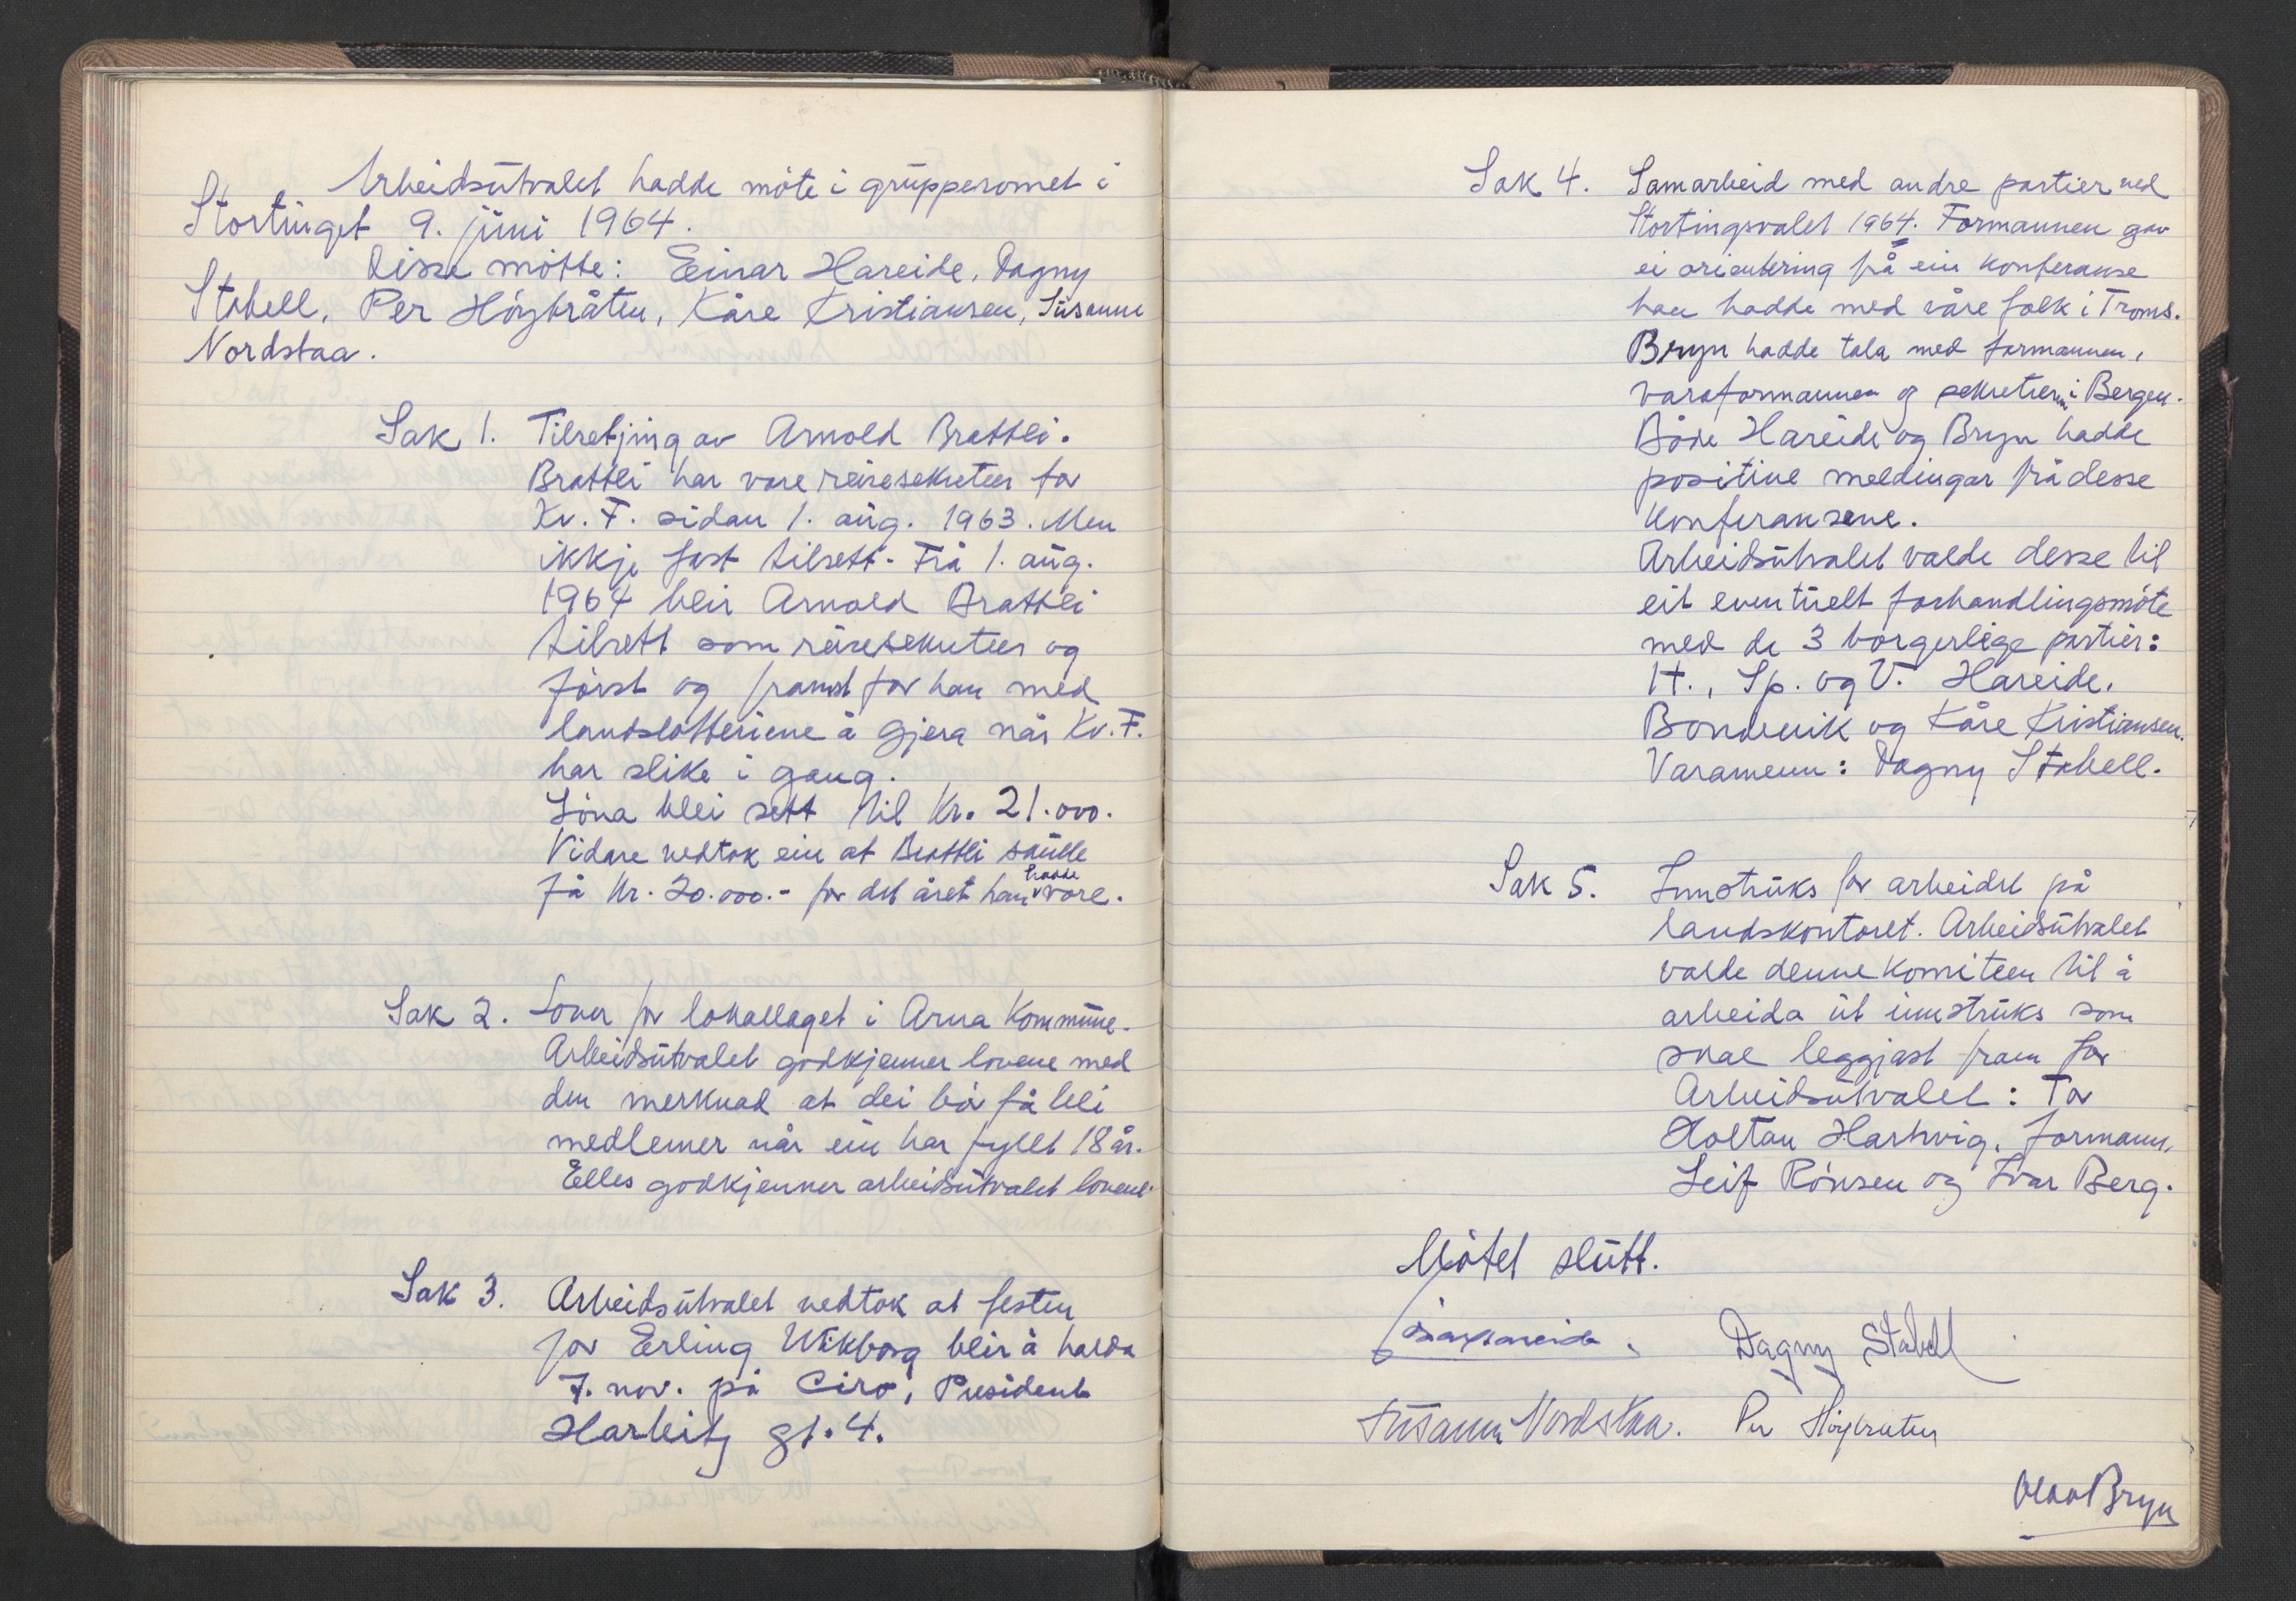 Arbeidsutvalet hadde møte i grupperomet i
Stortinget 9. juni 1964.
Disse møtte: Einar Hareide, Dagny
Stabell, Per Høybråten, Kåre Kristiansen, Susanne
Nordstaa.
Sak 1. Tilsetjing av Arnold Brattli.
Brattli har vore reisesekretær for
Kr. F. sidan 1. aug. 1963. Men
ikkje fast tilsett. Frå 1. aug.
1964 blir Arnold Brattli
tilsett som reisesekretær og
først og framst for han med
landslotteriene å gjera når Kr. F.
har slike i gang.
Løna blei sett til kr. 21.000.
Vidare vedtok ein at Brattli skulle
få kr. 20.000.- for det året han hadde vore.
Sak 2. Lover for lokallaget i Arna Kommune.
Arbeidsutvalet godkjenner lovene med
den merknad at dei bør få bli
medlemer når ein har fyllt 18 år.
Elles godkjenner arbeidsutvalet lovene.
Sak 3. Arbeidsutvalet vedtok at festen
for Erling Wikborg blir å halda
7. nov. på Ciro, President
Harbitz gt. 4.
Sak 4. Samarbeid med andre partier ved
Stortingsvalet 1964. Formannen gav
ei orientering frå ein konferanse
han hadde med våre folk i Troms.
Bryn hadde tala med formannen,
varaformannen og sekretæren i Bergen.
Både Hareide og Bryn hadde
positive meldingar frå desse
konferansene.
Arbeidsutvalet valde desse til
eit eventuelt forhandlingsmøte
med de 3 borgerlige partier:
H., Sp. og V. Hareide,
Bondevik og Kåre Kristiansen.
Varamenn: Dagny Stabell.
Sak 5. Innstruks for arbeidet på
landskontoret. Arbeidsutvalet
valde denne komiteen til å
arbeida ut innstruks som
skal leggjast fram for
Arbeidsutvalet: Tor
Holtan Hartwig, formann,
Leif Rønsen og Ivar Berg.
Møtet slutt.
Einar Hareide. Dagny Stabell
Susanne Nordstaa. Per Høybråten
Olav Bryn